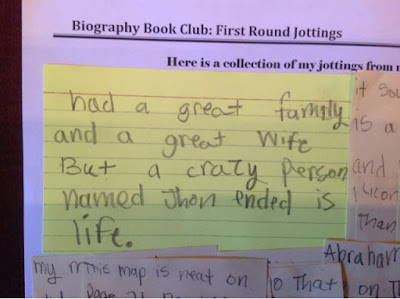 Biography Book Club: First Round Jottings
Here is a collection of my jottings from
had a great family
and a great wife
But a crazy person
named Jhon ended is
life.
is a
and
Than
Abraham
my map is neat on
To That on